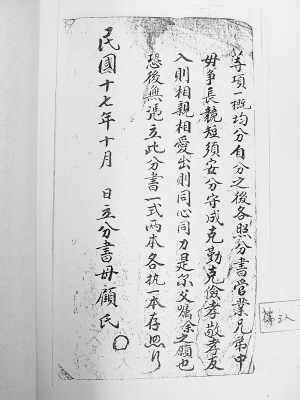 等項一概均分自分之後各照分書管業兄弟中
毋爭長競短須安分守成克勤克儉孝敬孝友
入則相親相愛出則同心同力是爾父囑余之願也
恐後無憑立此分書一式兩本各執一本存照
民國十七年十月 日立分書母顧氏